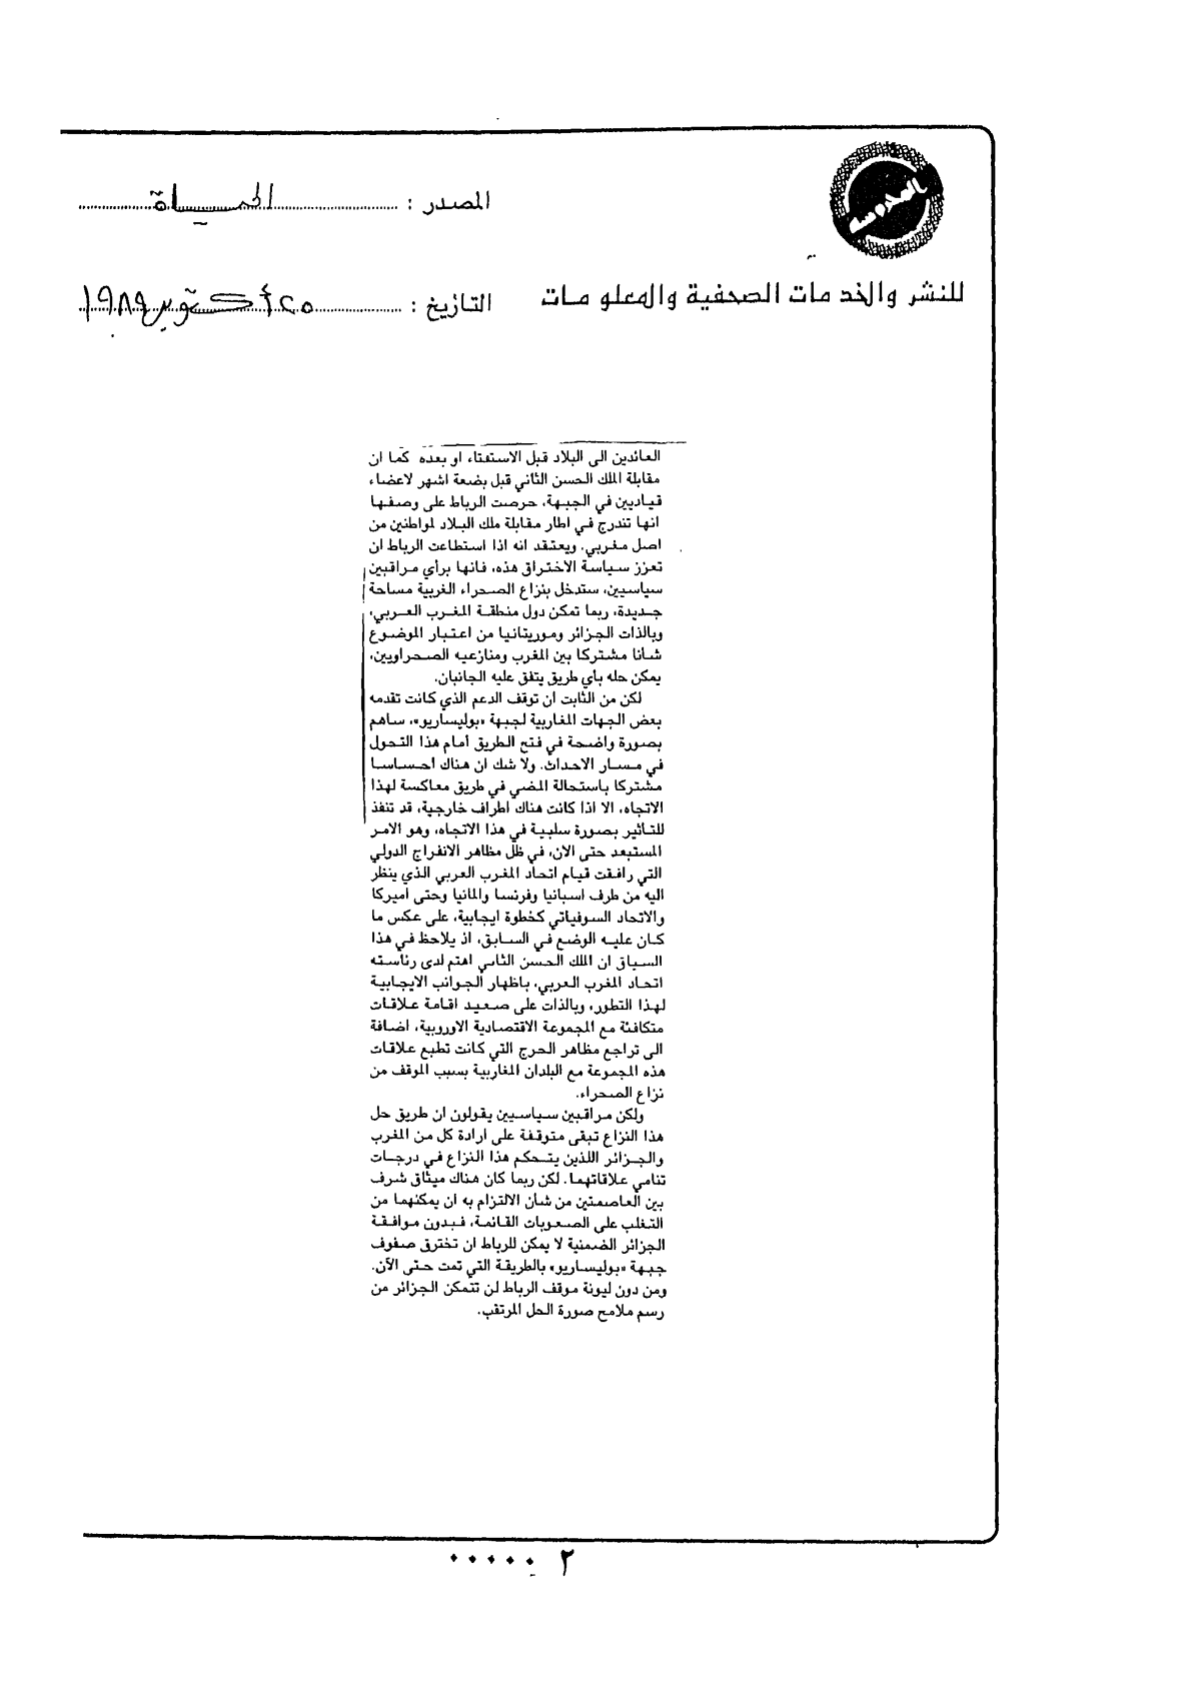 المصدر : الحياة
للنشر والخدمات الصحفية والمعلومات
التاريخ : ٢٥ أكتوبر ١٩٨٩
العائدين الى البلاد قبل الاستفتاء او بعده كما ان
مقابلة الملك الحسن الثاني قبل بضعة اشهر لاعضاء
قياديين في الجبهة، حرصت الرباط على وصفها
انها تندرج في اطار مقابلة ملك البلاد لمواطنين من
اصل مغربي. ويعتقد انه اذا استطاعت الرباط ان
تعزز سياسة الاختراق هذه، فانها برأي مراقبين
سياسيين، ستدخل بنزاع الصحراء الغربية مساحة
جديدة، ربما تمكن دول منطقة المغرب العربي،
وبالذات الجزائر وموريتانيا من اعتبار الموضوع
شانا مشتركا بين المغرب ومنازعيه الصحراويين،
يمكن حله بأي طريق يتفق عليه الجانبان.
لكن من الثابت ان توقف الدعم الذي كانت تقدمه
بعض الجهات المغاربية لجبهة «بوليساريو»، ساهم
بصورة واضحة في فتح الطريق أمام هذا التحول
في مسار الاحداث. ولا شك ان هناك احساسا
مشتركا باستحالة المضي في طريق معاكسة لهذا
الاتجاه، الا اذا كانت هناك اطراف خارجية، قد تنفذ
للتاثير بصورة سلبية في هذا الاتجاه، وهو الامر
المستبعد حتى الان، في ظل مظاهر الانفراج الدولي
التي رافقت قيام اتحاد المغرب العربي الذي ينظر
اليه من طرف اسبانيا وفرنسا والمانيا وحتى اميركا
والاتحاد السوفياتي كخطوة ايجابية، على عكس ما
كان عليه الوضع في السابق، اذ يلاحظ في هذا
السياق ان الملك الحسن الثاني اهتم لدى رئاسته
اتحاد المغرب العربي، باظهار الجوانب الايجابية
لهذا التطور، وبالذات على صعيد اقامة علاقات
متكافئة مع المجموعة الاقتصادية الاوروبية، اضافة
الى تراجع مظاهر الحرج التي كانت تطبع علاقات
هذه المجموعة مع البلدان المغاربية بسبب الموقف من
نزاع الصحراء.
ولكن مراقبين سياسيين يقولون ان طريق حل
هذا النزاع تبقى متوقفة على ارادة كل من المغرب
والجزائر اللذين يتحكم هذا النزاع في درجات
تنامي علاقاتهما. لكن ربما كان هناك ميثاق شرف
بين العاصمتين من شأن الالتزام به ان يمكنهما من
التغلب على الصعوبات القائمة، فبدون موافقة
الجزائر الضمنية لا يمكن للرباط ان تخترق صفوف
جبهة «بوليساريو» بالطريقة التي تمت حتى الآن.
ومن دون ليونة موقف الرباط لن تتمكن الجزائر من
رسم ملامح صورة الحل المرتقب.
٢ .....